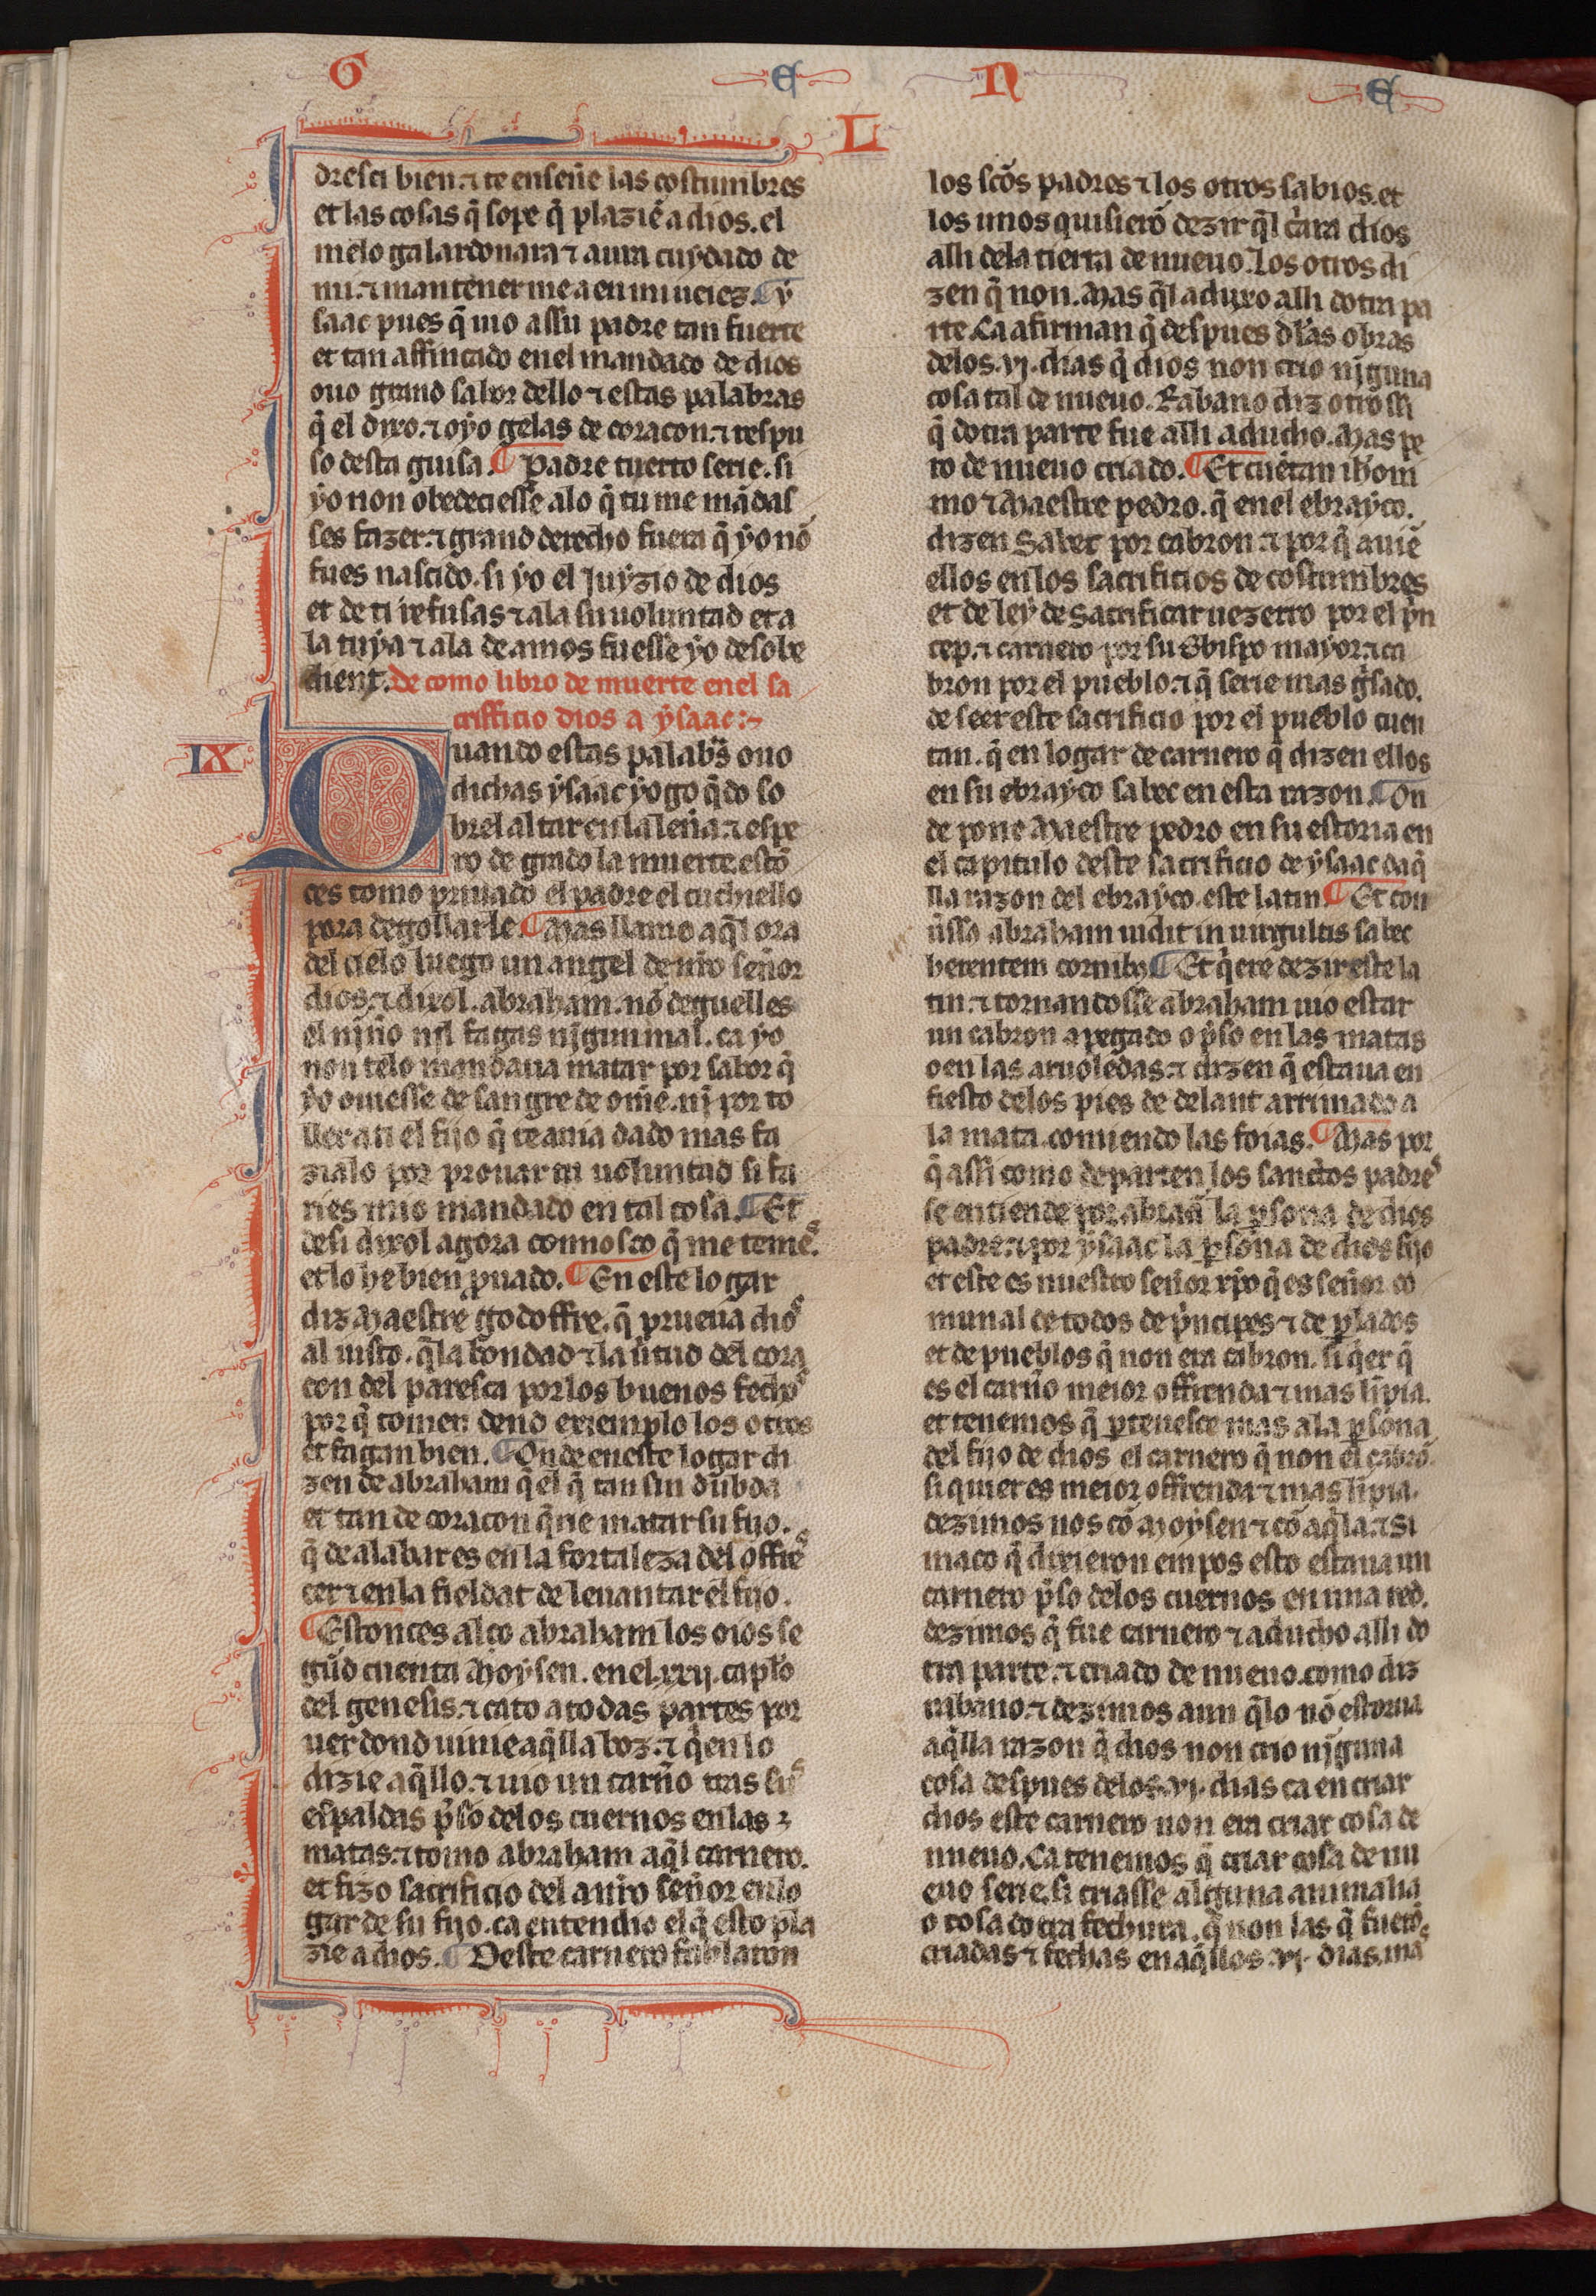 G E N E
LI
dresci bien. ⁊ te enseñe las costumbres
et las cosas q̃ sope q̃ plaziẽ a dios. el
melo galardonara ⁊ aura cuydado de
mi. ⁊ mantener me a en mi ueiez. ¶ y
saac pues q̃ uio assu padre tan fuerte
et tan affincado en el mandado de dios
ouo grand sabor dello ⁊ estas palabras
q̃ el dixo. ⁊ oyo gelas de coraçon. ⁊ respu
so desta guisa. ¶ Padre tuerto serie. si
yo non obedeciesse alo q̃ tu me mãdas
ses fazer. ⁊ grand derecho fuera q̃ yo nõ
fues nascido. si yo el Juyzio de dios
et de ti refusas ⁊ ala su uoluntad et a
la tuya ⁊ ala de amos fuesse yo desobe
dient. de como libro de muerte en el sa
crifficio dios a ysaac:~
IX
Quando estas palabrãs ouo
dichas ysaac yogo q̃do so
brel altar en la leña. ⁊ espe
ro de grado la muerte. estõ
ces tomo priuado el padre el cuchiello
pora degollarle. ¶ Mas llamo aq̃l ora
del cielo luego un angel de nr̃o señor
dios. ⁊ dixol. abraham. nõ deguelles
el njño nil fagas njgun mal. ca yo
non telo mandaua matar por sabor q̃
yo ouiesse de sangre de om̃e. nj por to
ller a ti el fijo q̃ te auia dado mas fa
zialo por prouar tu uoluntad si fa
ries mio mandado en tal cosa. ¶ Et
desi dixol agora connosco q̃ me temes.
et lo he bien ꝓuado. ¶ En este logar
diz Maestre godoffre. q̃ prueua dios
al iusto. q̃ la bondad ⁊ la uirtud del cora
çon del paresca por los buenos fechos
por q̃ tomen dend exemplo los otros
et fagan bien. ¶ Onde en este logar di
zen de abraham q̃ el q̃ tan sin dubda
et tan de coraçon q̃rie matar su fijo.
q̃ de alabar es en la fortaleza del offre
cer ⁊ en la fieldat de leuantar el fijo.
¶ Estonces alço abraham los oios se
gũd cuenta Moysen. en el .xxij. capl̃o
del genesis. ⁊ cato a todas partes por
uer dond uinie aq̃lla boz. ⁊ q̃en lo
dizie aq̃llo. ⁊ uio un carñ̃o tras sus
espaldas p̃so delos cuernos en las
matas. ⁊ tomo abraham aq̃l carnero.
et fizo sacrificio del a nr̃o señor en lo
gar de su fijo. ca entendio el q̃ esto pla
zie a dios. ¶ Deste carnero fablaron
los sc̃os padres ⁊ los otros sabios. et
los unos quisierõ dezir q̃l c̃ara dios
alli dela tierra de nueuo. los otros di
zen q̃ non. Mas q̃l aduxo alli dotra pa
rte. Ca afirman q̃ despues dlãs obras
delos .vj. dias q̃ dios non crio njguna
cosa tal de nueuo. Rabano diz otrossi
q̃ dotra parte fue alli aducho. Mas pe
ro de nueuo criado. ¶ Et cuẽtan ih̃oni
mo ⁊ Maestre pedro. q̃ en el ebrayco.
dizen Sabec por cabron. ⁊ por q̃ auiẽ
ellos en los sacrificios de costumbres
et de ley de Sacrificar uezerro por el p̃n
cep. ⁊ carnero por su Obispo mayor. ⁊ ca
bron por el pueblo. ⁊ q̃ serie mas g̃sado.
de seer este sacrificio por el pueblo cuen
tan. q̃ en logar de carnero q̃ dizen ellos
en su ebrayco sabec en esta razon. ¶ On
de pone Maestre pedro en su estoria en
el capitulo deste sacrificio de ysaac daq̃
lla razon del ebrayco. este latin. ¶ Et con
ũsso abraham uidit in uirgultis sabec
herentem cornibꝫ ¶ Et q̃ere dezir este la
tin. ⁊ tornandosse abraham uio estar
un cabron apegado o p̃so en las matas
o en las aruoledas. ⁊ dizen q̃ estaua en
fiesto delos pies de delant arrimado a
la mata. comiendo las foias. ¶ Mas por
q̃ assi como departen los sanctos padres
se entiende por abraã la ꝑsona de dios
padre. ⁊ por ysaac la ꝑsona de dios fijo
et este es nuestro señor xp̃o q̃ es señor co
munal de todos de p̃ncipes ⁊ de ꝑlados
et de pueblos q̃ non era cabron. si q̃er q̃
es el carñ̃o meior offrenda ⁊ mas lĩpia.
et tenemos q̃ ꝑtenesce mas ala ꝑsona
del fijo de dios el carnero q̃ non el cabrõ.
si quier es meior offrenda ⁊ mas lĩpia.
dezimos nos cõ Moysen ⁊ cõ aq̃la. ⁊ Si
maco q̃ dixieron empos esto estaua un
carnero p̃so delos cuernos en una red.
dezimos q̃ fue carnero ⁊ aducho alli do
tra parte. ⁊ criado de nueuo. como diz
rabano. ⁊ dezimos aun q̃lo nõ estorua
aq̃lla razon q̃ dios non crio njguna
cosa despues delos .vj. dias ca en criar
dios este carnero non era criar cosa de
nueuo. Ca tenemos q̃ criar cosa de nu
euo serie. si criasse alguna animalia
o cosa dotra fechura. q̃ non las q̃ fuerõ
criadas ⁊ fechas en aq̃llos .vj. dias. mas